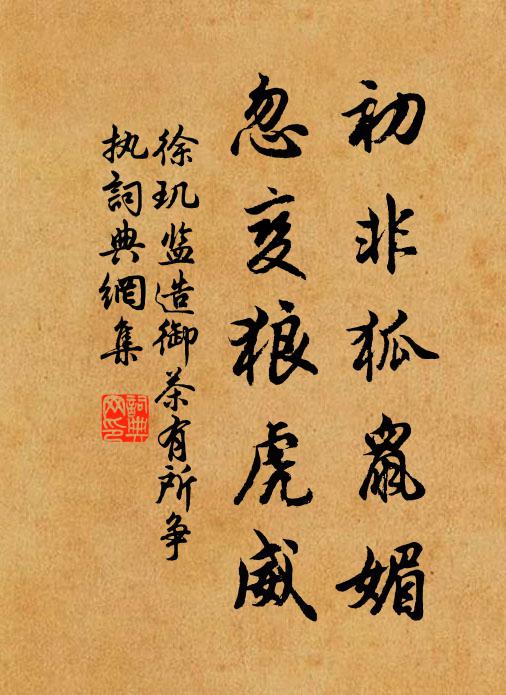 初非狐鼠媚
忽变狼虎威
徐玑监造御茶有所争
执詞典網集
詞典网印